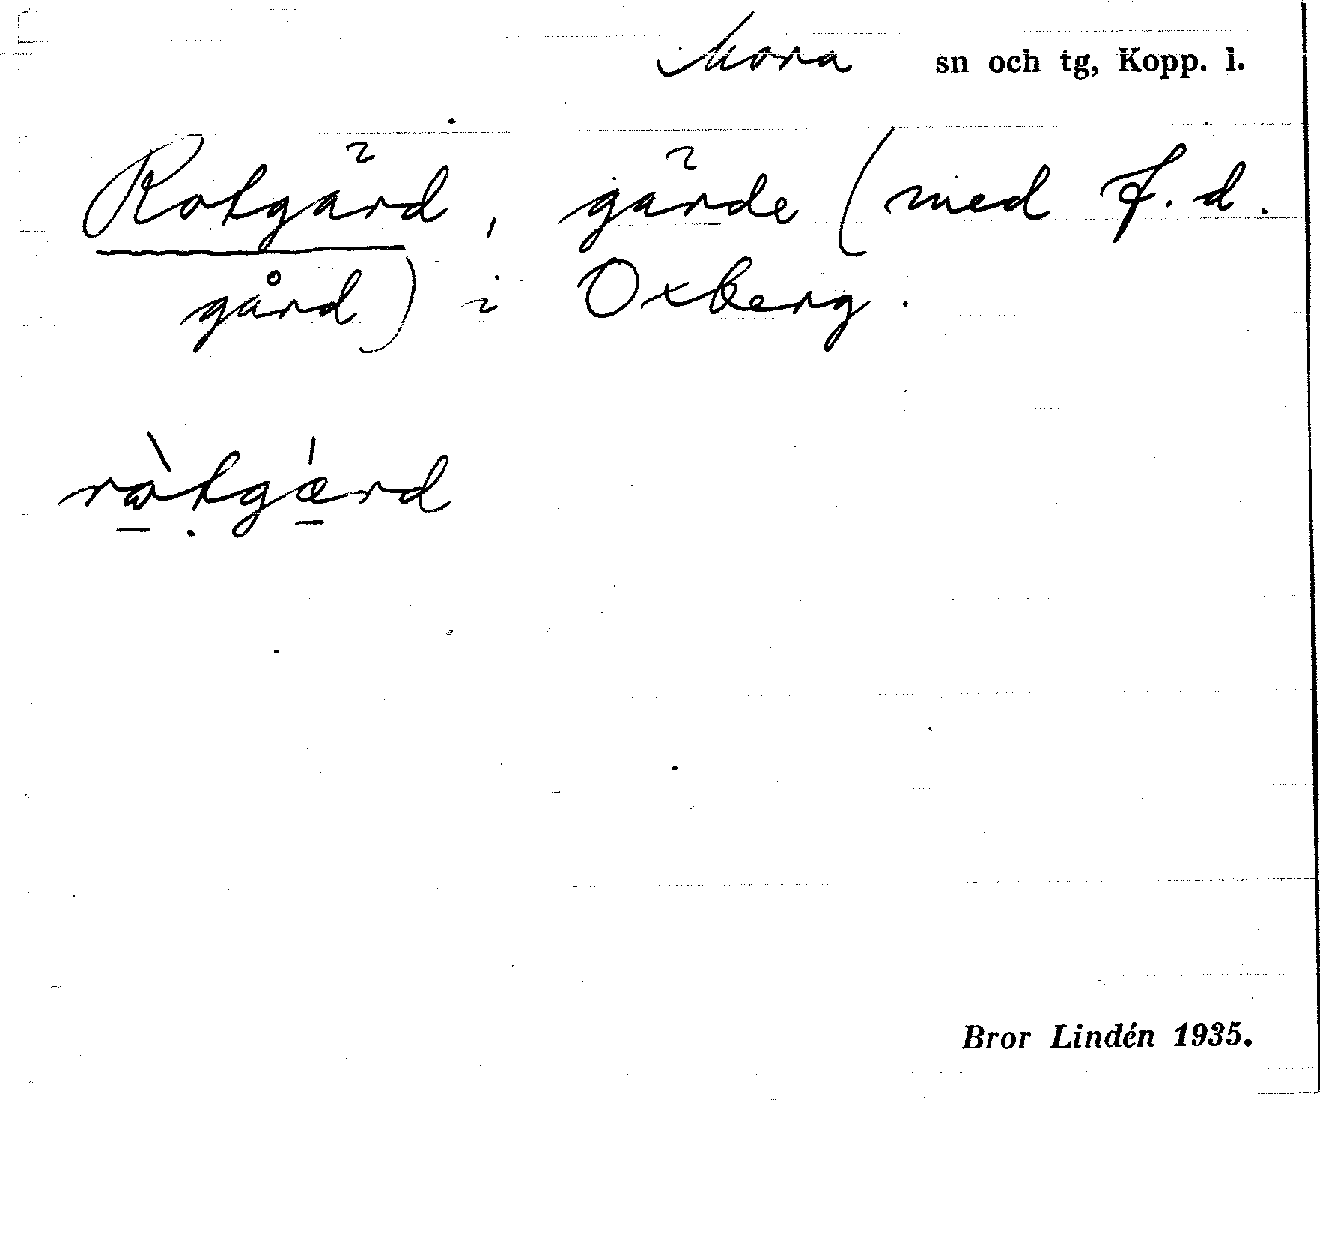 Mora sn och tg, Kopp. l.
Rotgärd, gärde (med f.d.
gård) i Oxberg.
ràtgærd
Bror Lindén 1935.